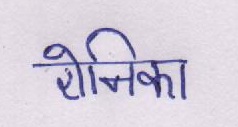 रोनिका